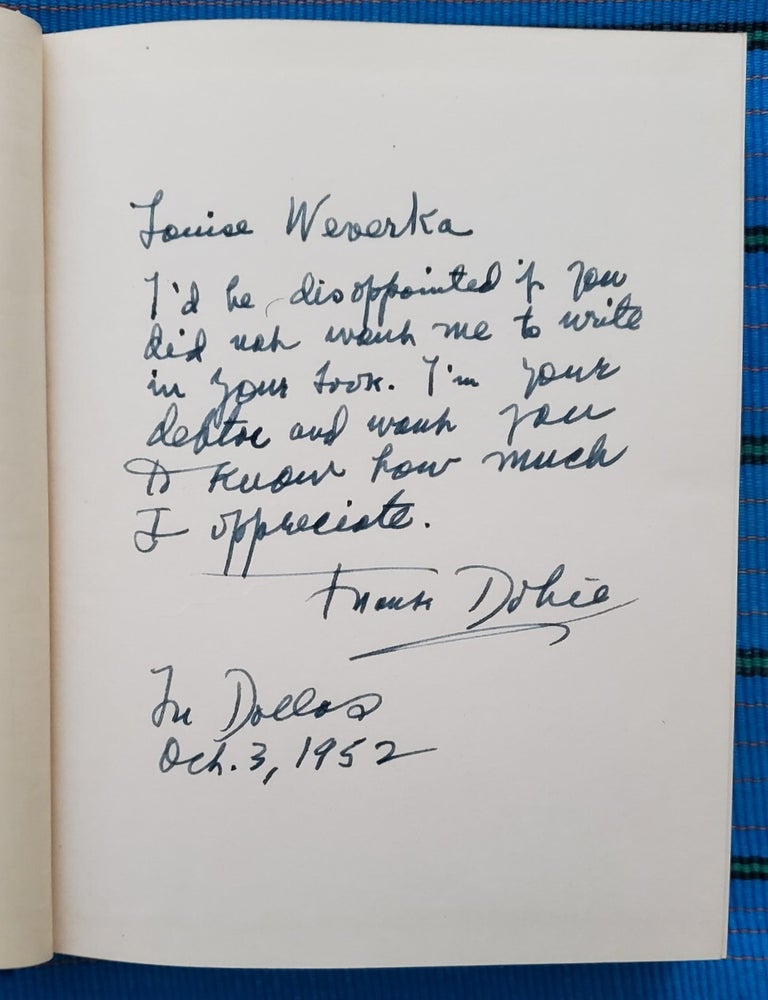 Louise Weverka
I'd be disappointed if you
did not want me to write
in your book. I'm your
debtor and want you
to know how much
I appreciate.
Frank Dobie
In Dallas
Oct. 3, 1952